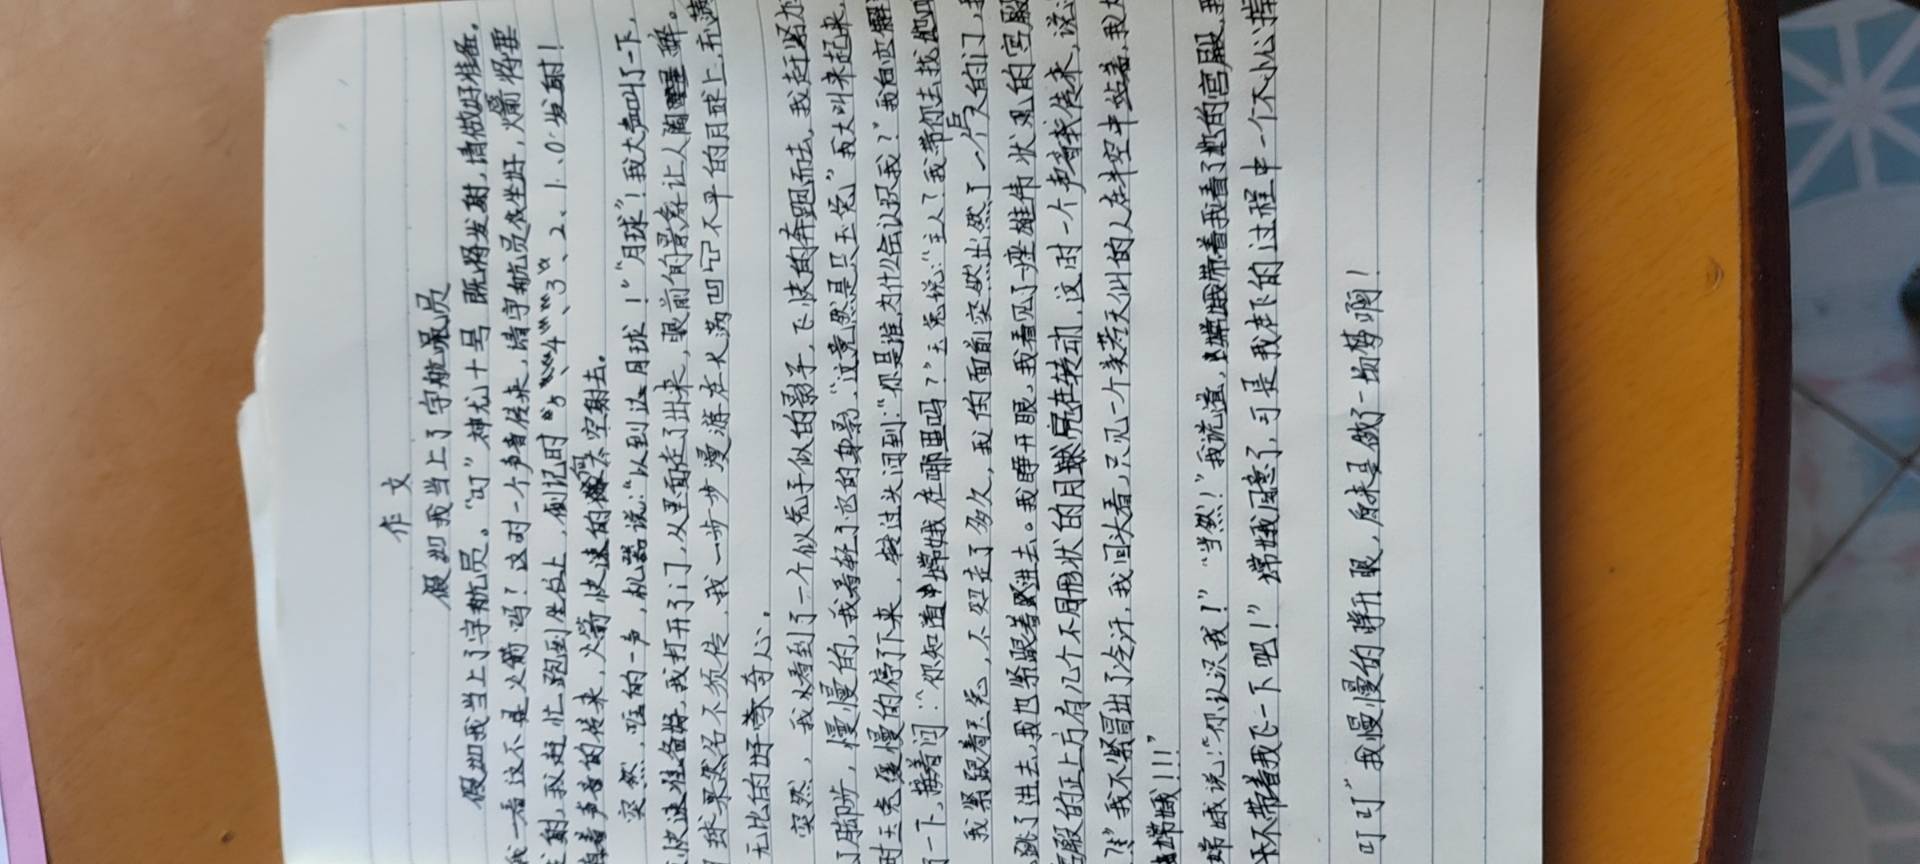 作文
假如我当上了宇航员
假如我当上了宇航员。“叮”神尤十号 既将发射，请做好准备。
我一看这不是火箭吗？这时一个声音传来，请宇航员做坐好，火箭将要
发射，我赶忙跑到坐位上，倒记时“5、4、3、2、1、0”发射！
随着声音的传来，火箭快速的向太空射去。
突然，咗的一声，机器说：“以到达月球！”“月球”！我大声叫了一下，
快速准备好，我打开了门，从里面走了出来，眼前的景象让人陶醉。
月球果然名不须传，我一步步漫游在长满凹凸不平的月球上，充满
无比的好奇心。
突然，我看到了一个似兔子似的影子，飞快的奔跑而去，我赶紧加
了脚步，慢慢的，我看轻了它的身影，“这竟然是只玉兔”我大叫来起来，
时玉兔缓慢的停下来，转过头问到：“你是谁，为什么会认识我？”我
了一下，接着问：“你知道嫦娥在哪里吗？”玉兔说：“主人？我带你去找她
我紧跟着玉兔，不知走了多久，我的面前突然出然了一个巨大的门，
跳了进去，我也紧跟着进去。我睁开眼，我看见了一座雄伟状观的宫殿
宫殿的正上方有几个不同形状的月球在转动，这时一个声音传来，说
”我不紧冒出了冷汗，我回头看，只见一个美若天仙的人在半空中站着，我
嫦娥！！！”
嫦娥说：“你认识我！”“当然！”我说道，嫦娥带着我看了她的宫殿，
不带着我飞一下吧！”嫦娥同意了，可是我在飞的过程中一个不小心掉
叮叮”我慢慢的睁开眼，原来是做了一场梦啊！